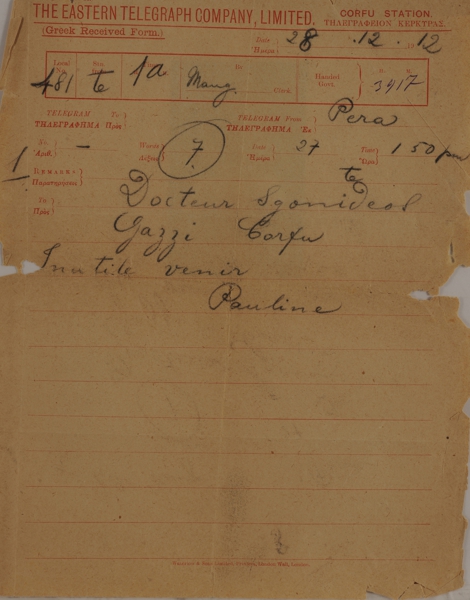 THE EASTERN TELEGRAPH COMPANY, LIMITED.
CORFU STATION.
ΤΗΛΕΓΡΑΦΕΙΟΝ ΚΕΡΚΥΡΑΣ.
(Greek Received Form.)
Date 28 . 12 . 1912
Ἡμέρα
481 te 1a Mang. Clerk. Handed 3417
TELEGRAM To TELEGRAM From Pera
ΤΗΛΕΓΡΑΦΗΜΑ Πρὸς ΤΗΛΕΓΡΑΦΗΜΑ Ἐκ
No. — Words 7 Date 27 Time 1 50 pm
Ἀριθ. Λέξεις Ἡμέρα Ὥρα
1 REMARKS te
Παρατηρήσεις
To Docteur Sgomideol
Πρὸς
Gazzi Corfu
Inutile venir
Pauline